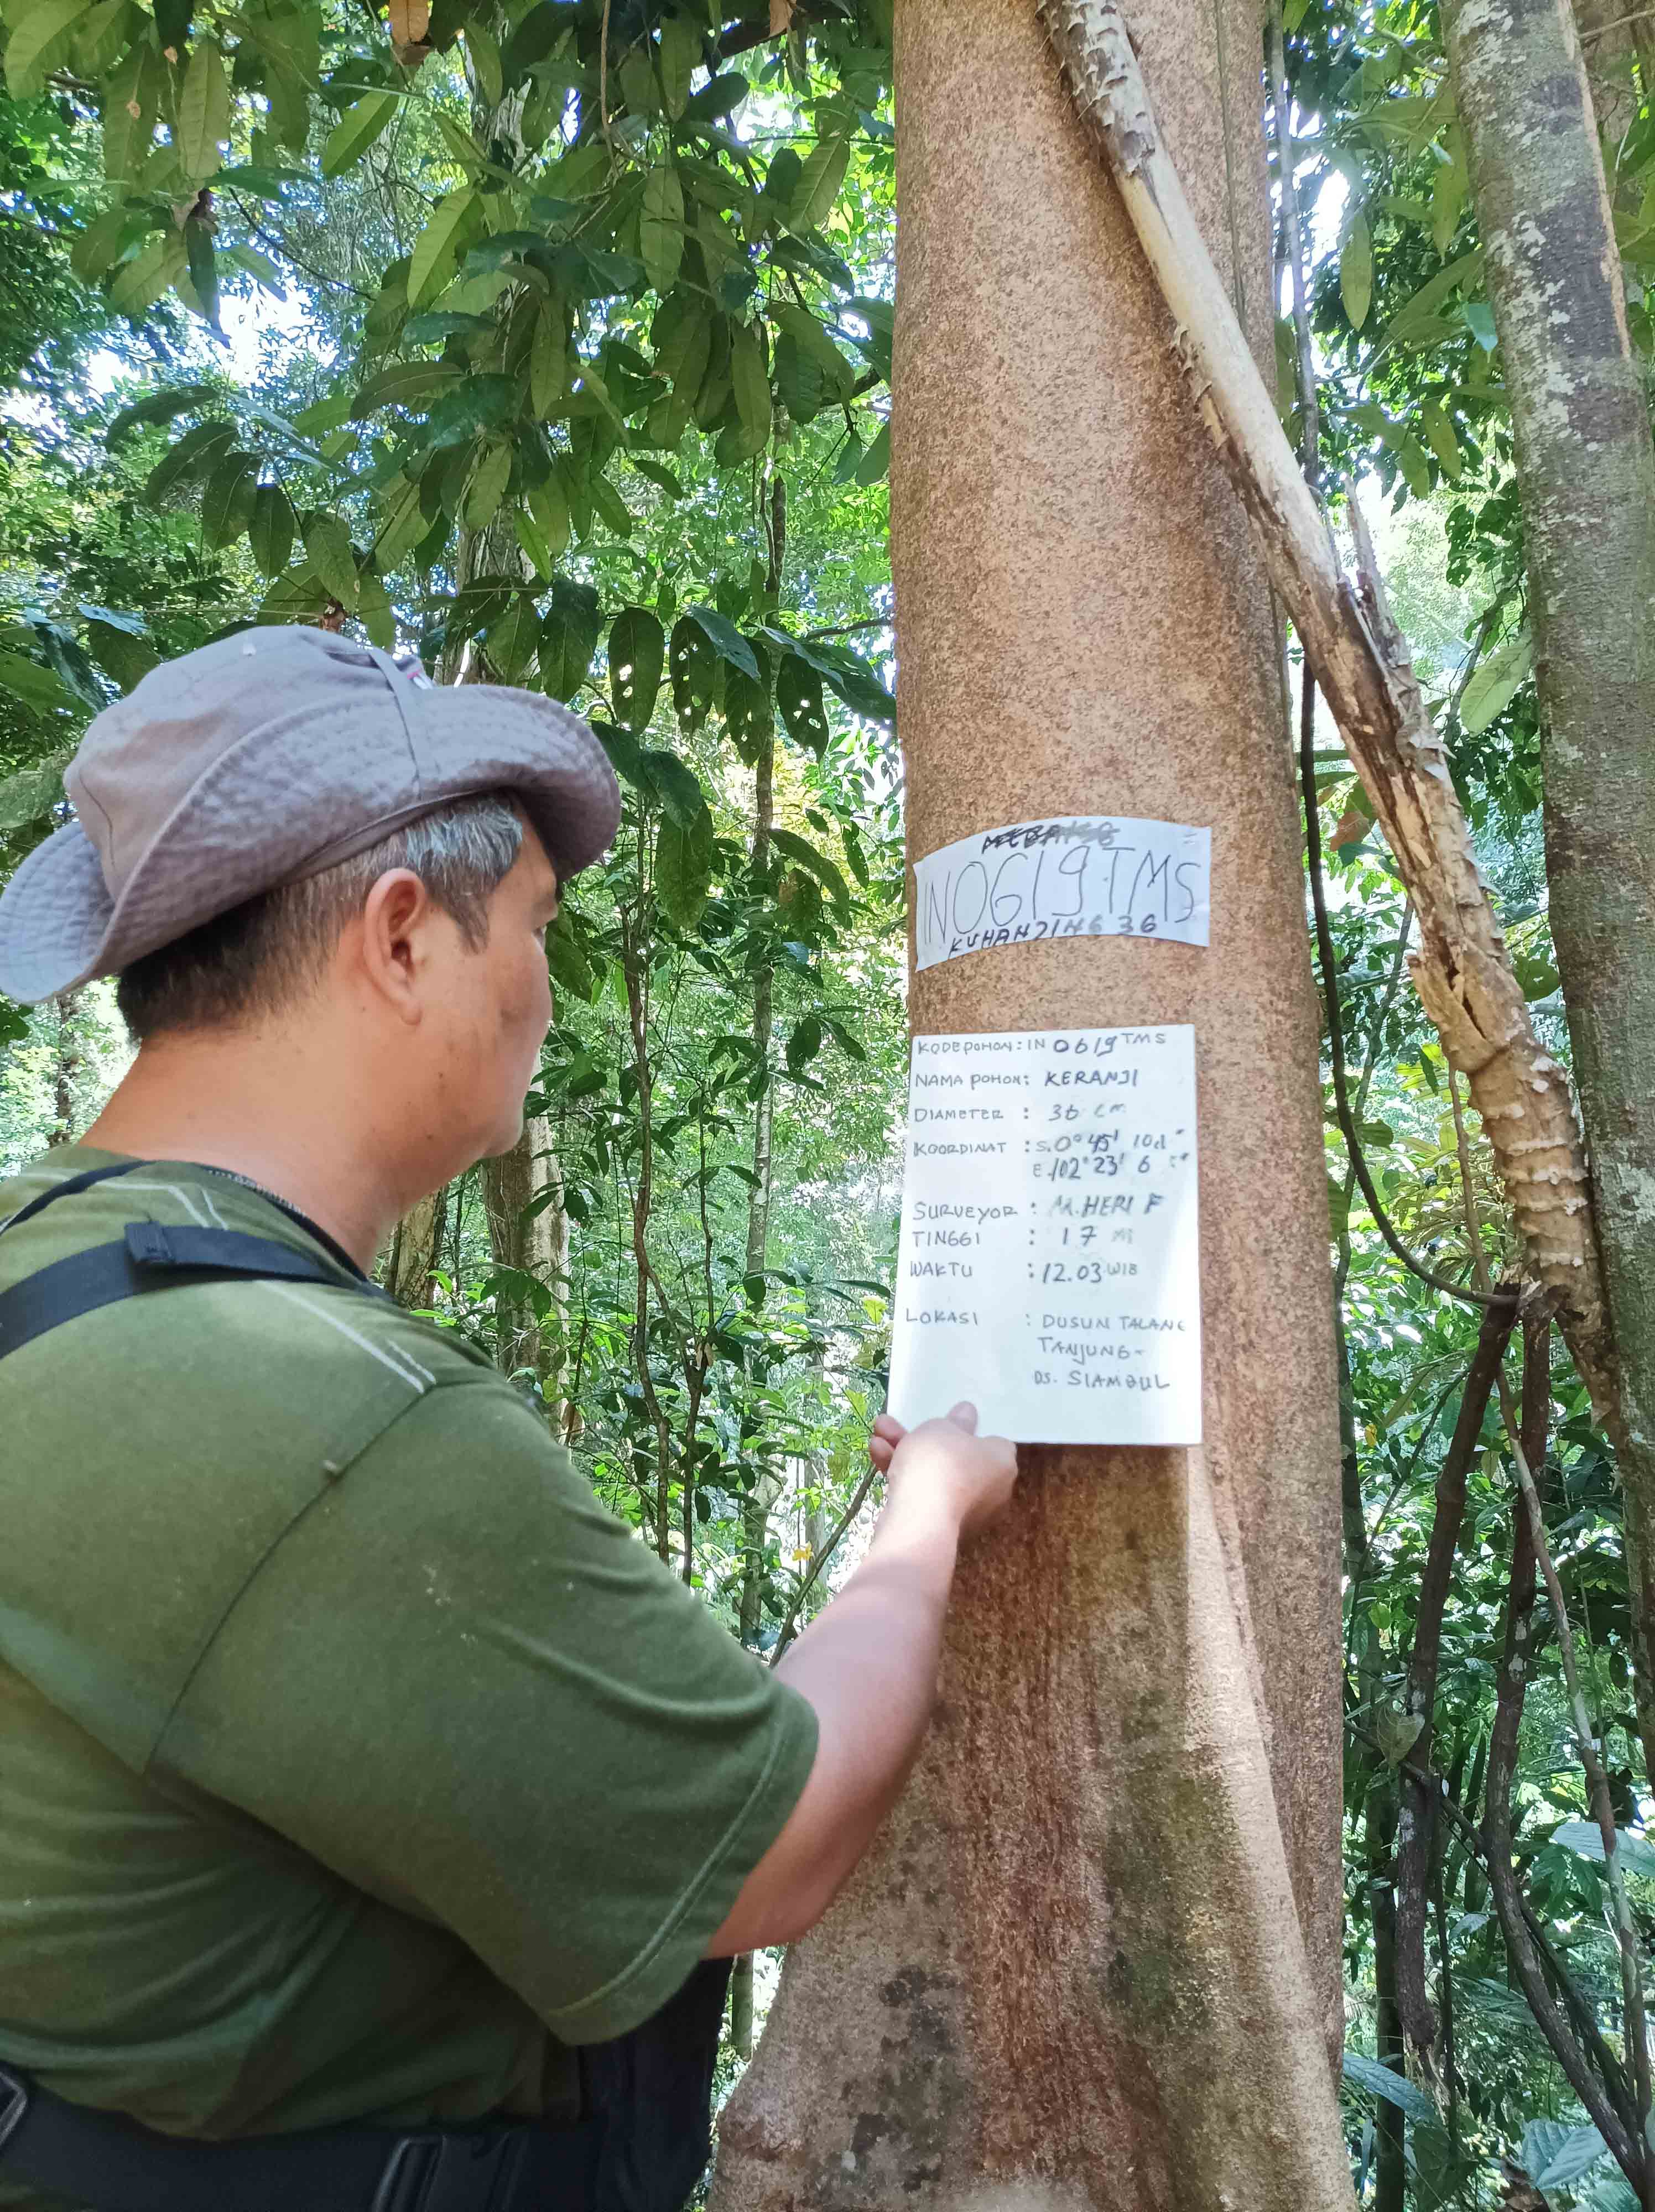 IN0619 TMS
KODE POHON: IN 0619 TMS
NAMA POHON: KERANJI
DIAMETER : 36 CM
KOORDINAT : S.0°45'
E.102°23' 6
SURVEYOR : M.HERI F
TINGGI : 17 M
WAKTU : 12.03 WIB
LOKASI : DUSUN TALANG
TANJUNG-
DS. SIAMBUL